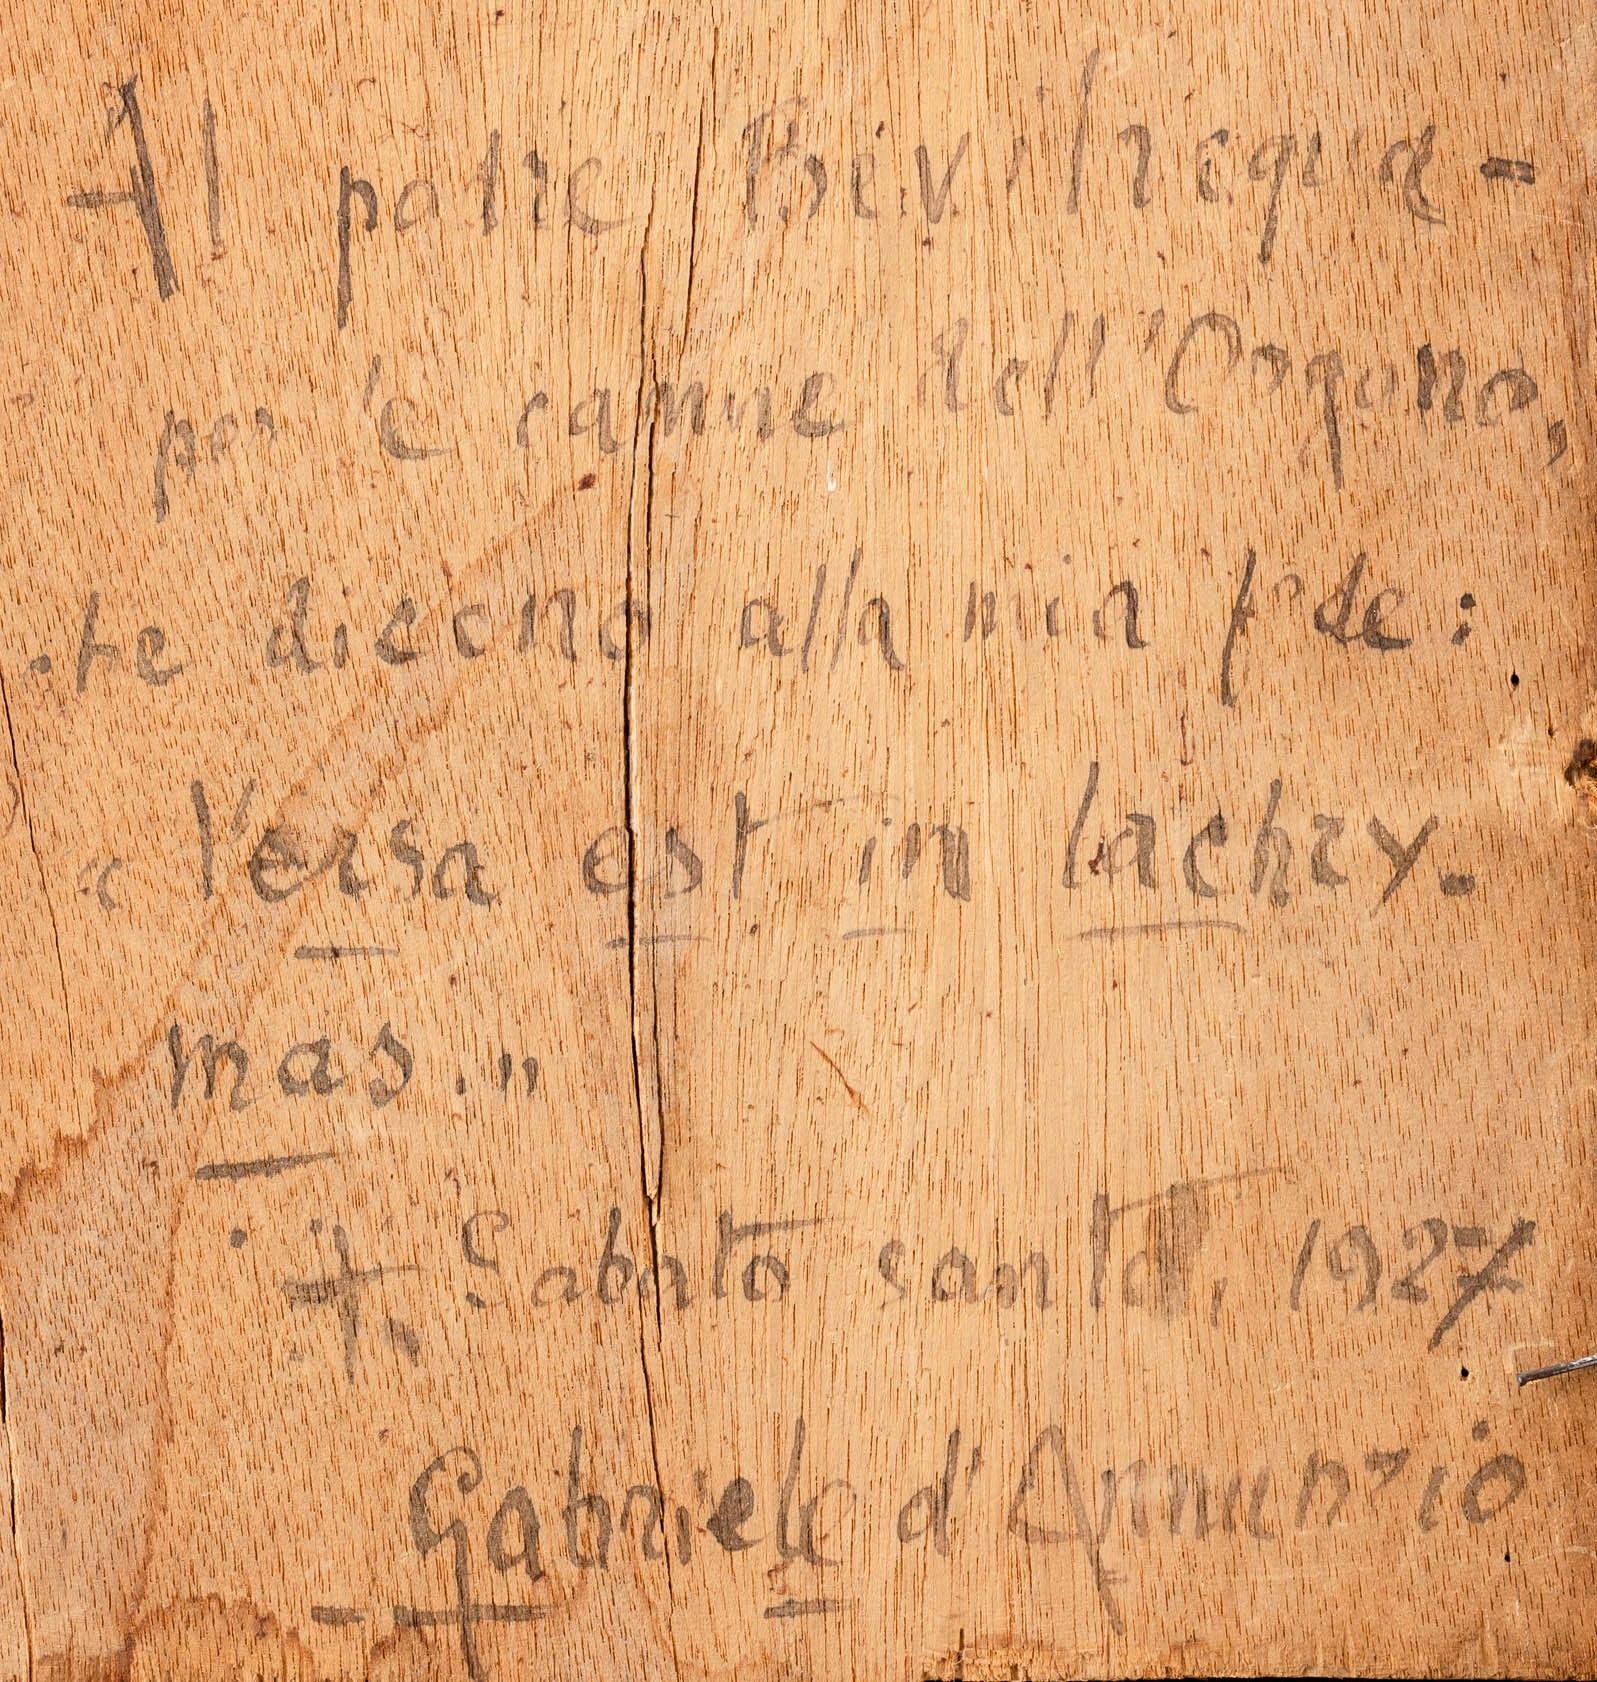 Al padre Bevilacqua -
per le canne dell'Organo,
che dicono alla mia fede:
« Versa est in lachry-
mas. »
† Sabato santo, 1927
Gabriele d'Annunzio